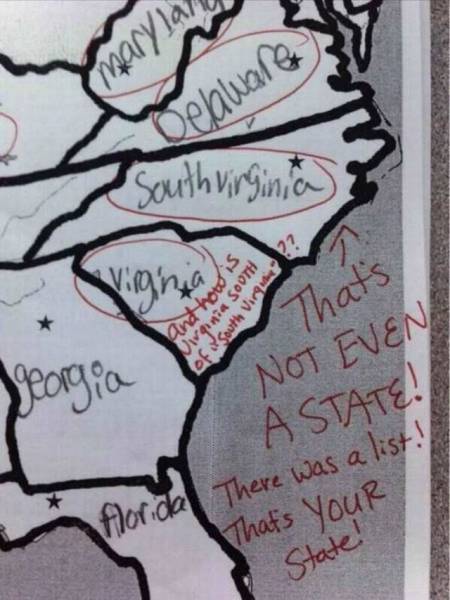 maryland
Delaware
South virginia
Virginia
and how is
Virginia SOUTH
of "South Virginia"??
That's
NOT EVEN
A STATE!
There was a list!
Thats YOUR
State!
georgia
florida